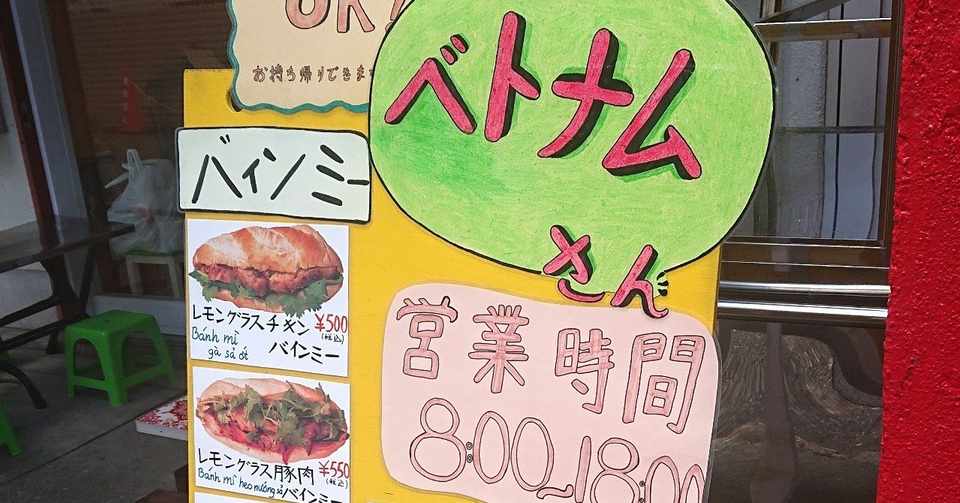 OK
お持ち帰りできます
ベトナム
さん
バインミー
レモングラスチキン ¥500
(税込)
Bánh mì
gà sả ớt
バインミー
レモングラス豚肉 ¥550
(税込)
Bánh mì heo nướng sả
バインミー
営業時間
8:00~18:00